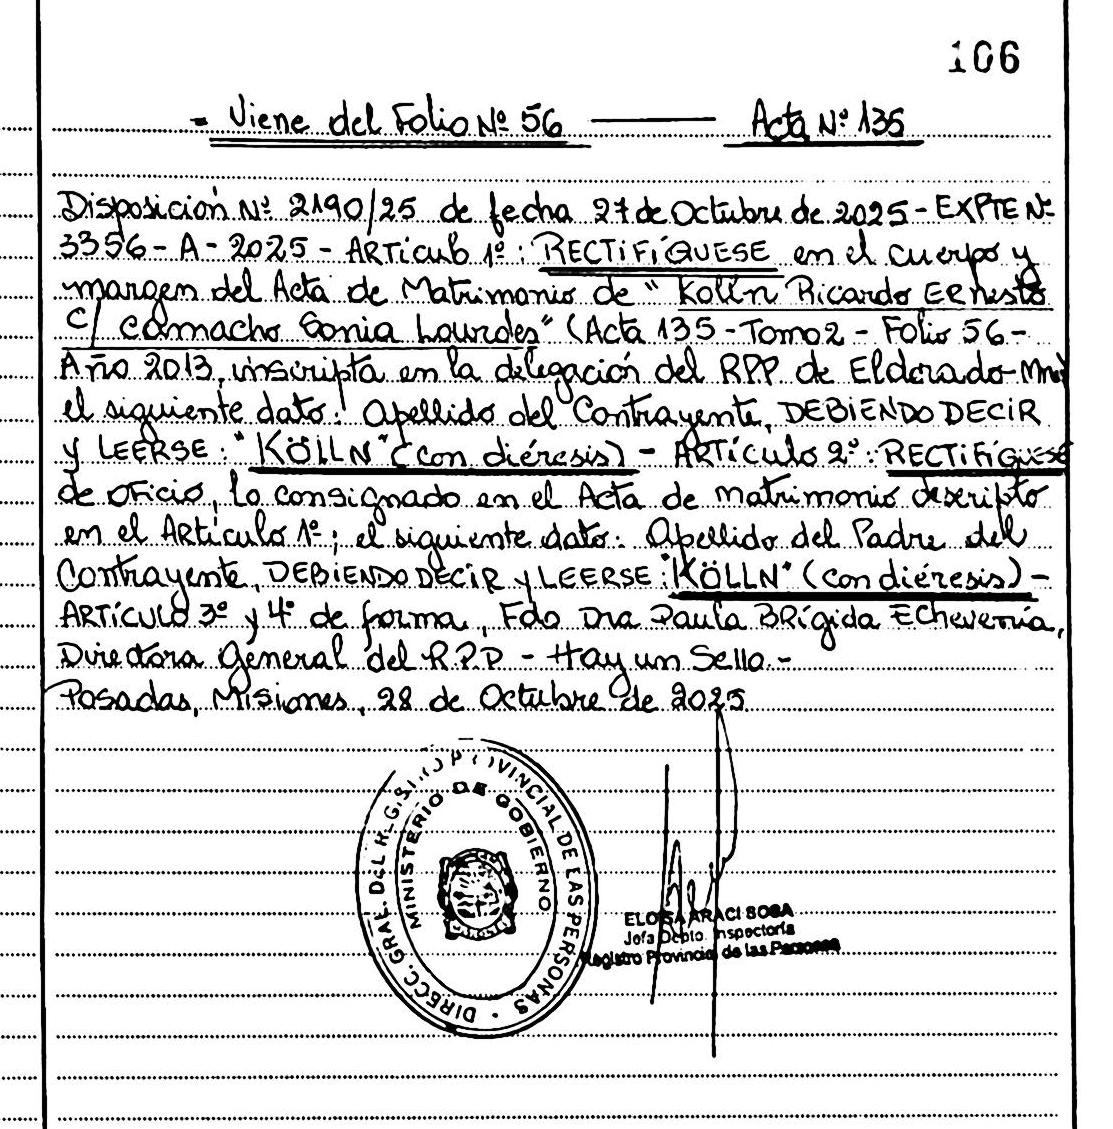 106
- Viene del Folio Nº 56 ——— Acta Nº 135
Disposición Nº 2190/25 de fecha 27 de Octubre de 2025 - EXPTE Nº
3356 - A - 2025 - ARTÍCULO 1º: RECTIFÍQUESE en el cuerpo y
margen del Acta de Matrimonio de "Kolln Ricardo Ernesto
C/ Camacho Sonia Lourdes" (Acta 135 - Tomo 2 - Folio 56 -
Año 2013, inscripta en la delegación del RPP de Eldorado - Mnes
el siguiente dato: Apellido del Contrayente, DEBIENDO DECIR
y LEERSE: "KÖLLN" (con diéresis) - ARTÍCULO 2º: RECTIFÍQUESE
de oficio, lo consignado en el Acta de matrimonio descripto
en el Artículo 1º; el siguiente dato: Apellido del Padre del
Contrayente, DEBIENDO DECIR y LEERSE: "KÖLLN" (con diéresis) -
ARTÍCULO 3º y 4º de forma, Fdo Dra Paula BRígida Echeverría,
Directora General del R.P.P - Hay un Sello. -
Posadas, Misiones, 28 de Octubre de 2025
DIRECC. GRAL. DEL REGISTRO PROVINCIAL DE LAS PERSONAS
MINISTERIO DE GOBIERNO
ELOISA ARACI SOSA
Jefa Dpto. Inspectoría
Registro Provincial de las Personas